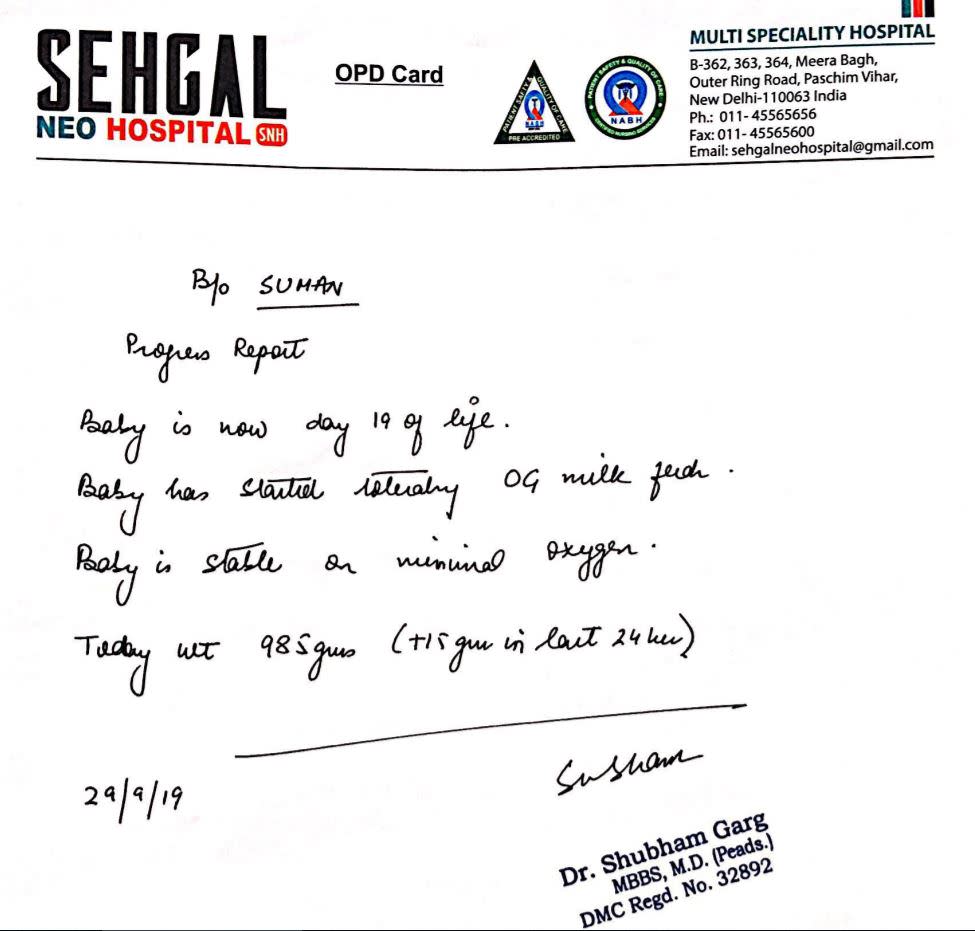 SEHGAL
NEO HOSPITAL SNH
OPD Card
PATIENT SAFETY & QUALITY OF CARE
NABH
PRE ACCREDITED
PATIENT SAFETY & QUALITY OF CARE
NABH
CERTIFIED NURSING SERVICES
MULTI SPECIALITY HOSPITAL
B-362, 363, 364, Meera Bagh,
Outer Ring Road, Paschim Vihar,
New Delhi-110063 India
Ph.: 011- 45565656
Fax: 011- 45565600
Email: sehgalneohospital@gmail.com
B/o SUMAN
Progress Report
Baby is now day 19 of life.
Baby has started tolerating OG milk feeds.
Baby is stable on minimal oxygen.
Today wt 985gms (+15 gm in last 24 hrs)
29/9/19
Shubham
Dr. Shubham Garg
MBBS, M.D. (Peads.)
DMC Regd. No. 32892